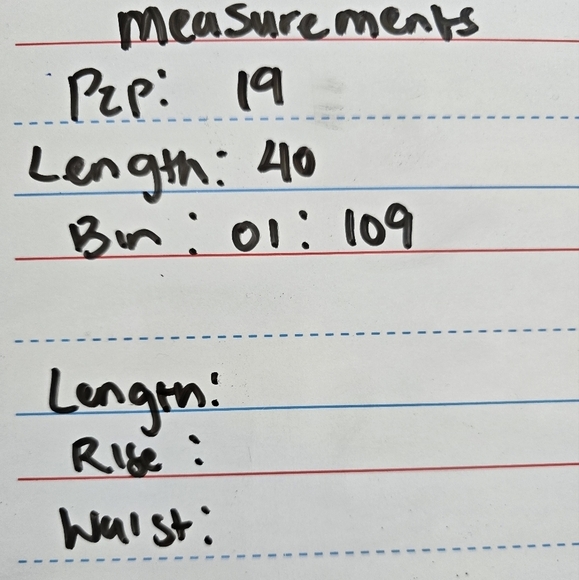 measurements
P2P: 19
Length: 40
Bin: 01: 109
Length:
Rise:
Waist: